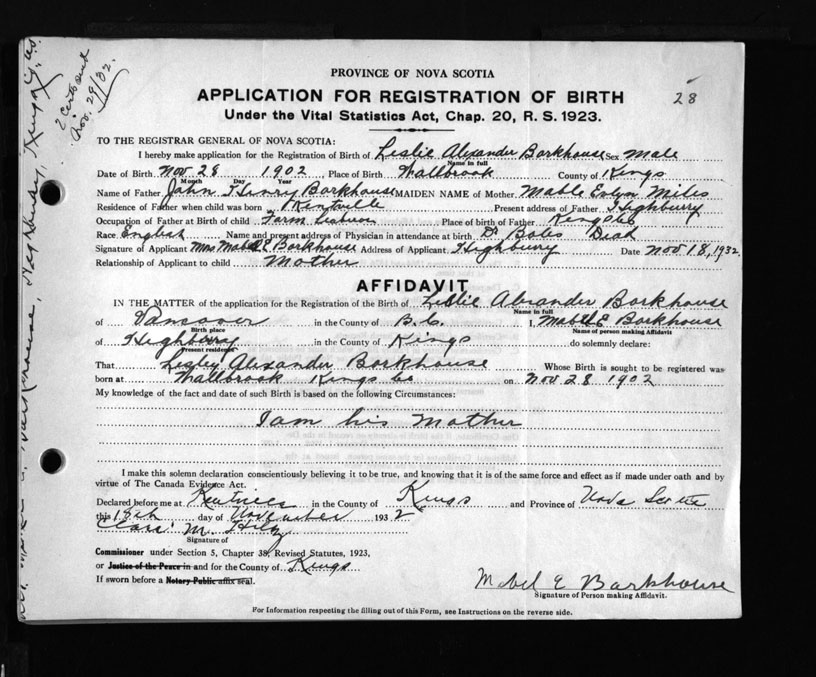 PROVINCE OF NOVA SCOTIA
APPLICATION FOR REGISTRATION OF BIRTH
28
Under the Vital Statistics Act, Chap. 20, R. S. 1923.
TO THE REGISTRAR GENERAL OF NOVA SCOTIA:
I hereby make application for the Registration of Birth of Leslie Alexander Barkhouse Sex Male
Name in full
Date of Birth Nov 28 1902 Place of Birth Wallbrook County of Kings
Month Day Year
Name of Father John Henry Barkhouse MAIDEN NAME of Mother Mable Evlyn Miles
Residence of Father when child was born Kentville Present address of Father Highbury
Occupation of Father at Birth of child Farm Place of birth of Father Kings
Race English Name and present address of Physician in attendance at birth Dr Dead
Signature of Applicant Mrs Mabel E Barkhouse Address of Applicant Highbury Date Nov 18, 1932
Relationship of Applicant to child Mother
AFFIDAVIT
IN THE MATTER of the application for the Registration of the Birth of Leslie Alexander Barkhouse
Name in full
of Vancover in the County of B.C. I, Mabel E Barkhouse
Birth place Name of person making Affidavit
of Highbury in the County of Kings do solemnly declare:
Present residence
That Lesley Alexander Barkhouse Whose Birth is sought to be registered was
born at Wallbrook Kings Co on Nov 28 1902
My knowledge of the fact and date of such Birth is based on the following Circumstances:
I am his Mother
I make this solemn declaration conscientiously believing it to be true, and knowing that it is of the same force and effect as if made under oath and by
virtue of The Canada Evidence Act.
Declared before me at Kentville in the County of Kings and Province of Nova Scotia
this 18th day of November 1932
M.
Signature of
Commissioner under Section 5, Chapter 38, Revised Statutes, 1923,
or Justice of the Peace in and for the County of Kings
If sworn before a Notary Public affix seal.
Mabel E Barkhouse
Signature of Person making Affidavit.
For Information respecting the filling out of this Form, see Instructions on the reverse side.
2 Certs sent
Nov. 29/02.